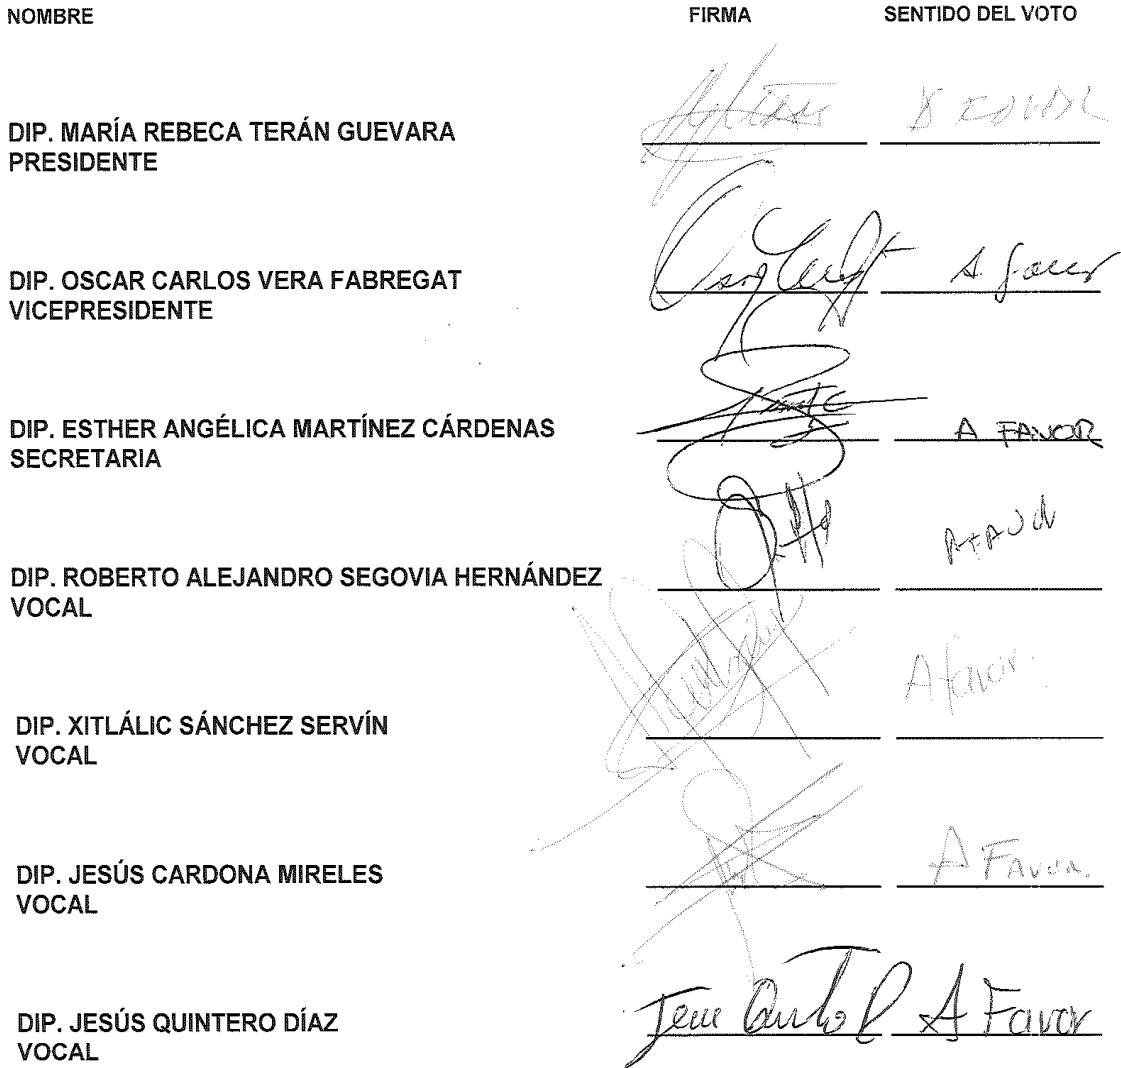 NOMBRE FIRMA SENTIDO DEL VOTO
DIP. MARÍA REBECA TERÁN GUEVARA
PRESIDENTE
DIP. OSCAR CARLOS VERA FABREGAT
VICEPRESIDENTE
A favor
DIP. ESTHER ANGÉLICA MARTÍNEZ CÁRDENAS
SECRETARIA
A FAVOR
DIP. ROBERTO ALEJANDRO SEGOVIA HERNÁNDEZ
VOCAL
DIP. XITLÁLIC SÁNCHEZ SERVÍN
VOCAL
A favor.
DIP. JESÚS CARDONA MIRELES
VOCAL
A FAVOR.
DIP. JESÚS QUINTERO DÍAZ
VOCAL
A Favor